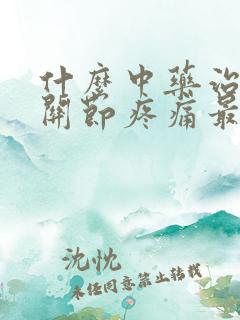 什麼中藥治
關節疼痛最
沈忱
未经同意禁止转载